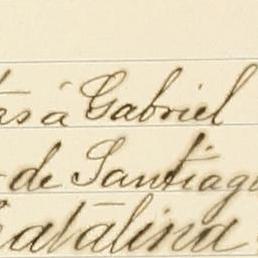 á Gabriel
de Santiago
Catalina